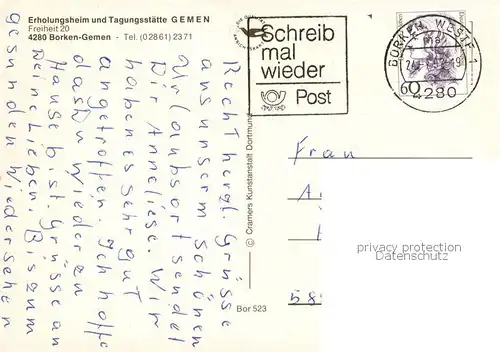 Erholungsheim und Tagungsstätte GEMEN
Freiheit 20
4280 Borken-Gemen - Tel. (02861) 2371
Schreib
mal
wieder
Post
BORKEN, WESTF 1
4280
60
Recht herzl. Grüsse
aus unserm schönen
Urlaubsort sendet
Dir Anneliese. Wir
haben es sehr gut
angetroffen. Ich hoffe
dass Du wieder zu
Hause bist. Grüsse an
Deine Lieben. Bis zum
gesunden Wiedersehen
© Cramers Kunstanstalt Dortmund
Bor 523
Frau
A
58
privacy protection
Details-tuell.com